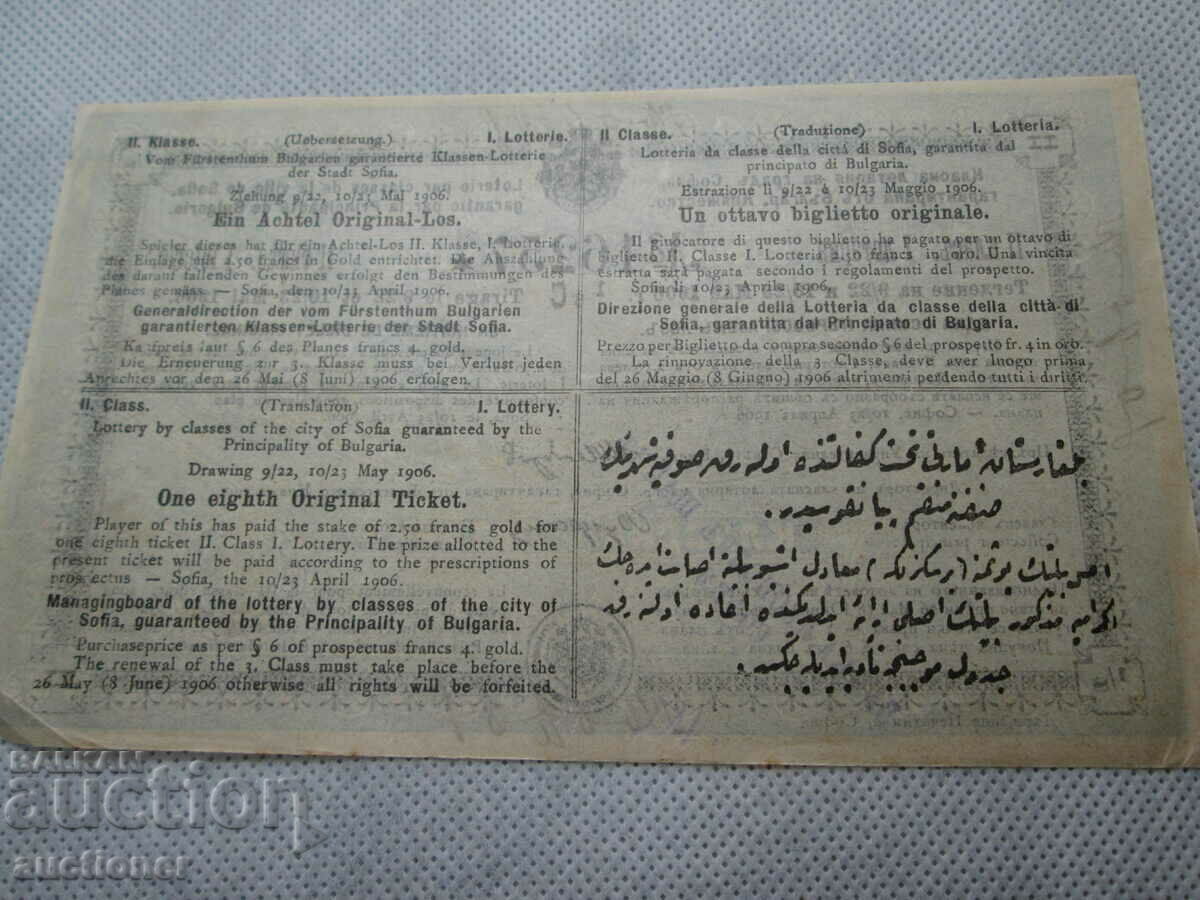 II. Klasse. (Uebersetzung.) I. Lotterie.
Vom Fürstenthum Bulgarien garantierte Klassen-Lotterie
der Stadt Sofia.
Ziehung 9/22, 10/23 Mai 1906.
Ein Achtel Original-Los.
Spieler dieses hat für ein Achtel-Los II. Klasse, I. Lotterie,
die Einlage mit 2.50 francs in Gold entrichtet. Die Auszahlung
des darauf fallenden Gewinnes erfolgt den Bestimmungen des
Planes gemäss. — Sofia, den 10/23 April 1906.
Generaldirection der vom Fürstenthum Bulgarien
garantierten Klassen-Lotterie der Stadt Sofia.
Kaufpreis laut § 6 des Planes francs 4. gold.
Die Erneuerung zur 3. Klasse muss bei Verlust jeden
Anrechtes vor dem 26 Mai (8 Juni) 1906 erfolgen.
II Classe. (Traduzione) I. Lotteria.
Lotteria da classe della cittá di Sofia, garantita dal
principato di Bulgaria.
Estrazione li 9/22 è 10/23 Maggio 1906.
Un ottavo biglietto originale.
Il giuocatore di questo biglietto ha pagato per un ottavo di
biglietto II. Classe I. Lotteria 2.50 franchi in oro. Una vincita
estratta sará pagata secondo i regolamenti del prospetto.
Sofia li 10/23 Aprile 1906,
Direzione generale della Lotteria da classe della cittá di
Sofia, garantita dal Principato di Bulgaria.
Prezzo per Biglietto da compra secondo § 6 del prospetto fr. 4 in oro.
La rinnovazione della 3 Classe, deve aver luogo prima
del 26 Maggio (8 Giugno) 1906 altrimenti perdendo tutti i diritti.
II. Class. (Translation) I. Lottery.
Lottery by classes of the city of Sofia guaranteed by the
Principality of Bulgaria.
Drawing 9/22, 10/23 May 1906.
One eighth Original Ticket.
Player of this has paid the stake of 2.50 francs gold for
one eighth ticket II. Class I. Lottery. The prize allotted to the
present ticket will be paid according to the prescriptions of
prospectus — Sofia, the 10/23 April 1906.
Managingboard of the lottery by classes of the city of
Sofia, guaranteed by the Principality of Bulgaria.
Purchaseprice as per § 6 of prospectus francs 4. gold.
The renewal of the 3. Class must take place before the
26 May (8 June) 1906 otherwise all rights will be forfeited.
بلغارستان امارتی تحت كفالتنده اوله رق صوفیه شهرینك
صنفه منقسم پیانقوسیدر.
معادل اشبو بیلته اصابت ایده جك
اكرامیه مذكور بیلتك اصلی ارائه ایلدكده افاده اولنه رق
جدول موجبنجه تأدیه ایدیله جكدر.
BALKAN
auction
auctionei